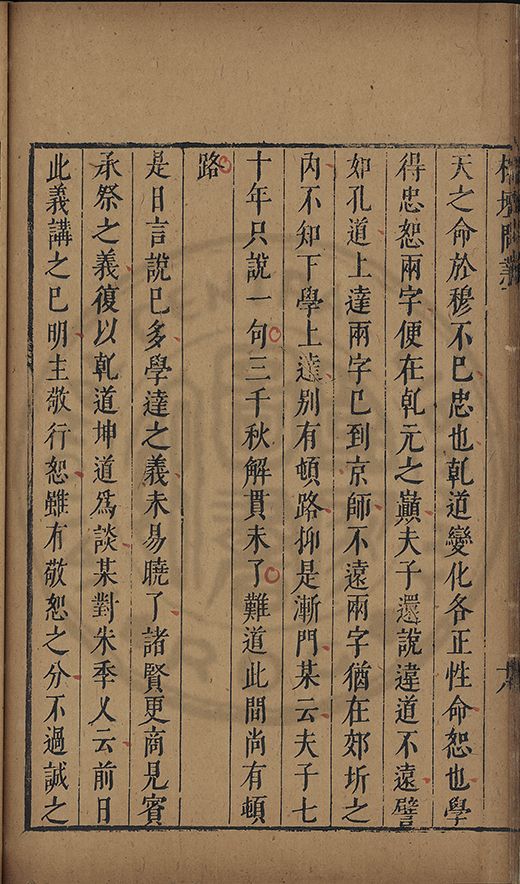 榕壇問業
天之命於穆不已忠也乹道變化各正性命恕也學
得忠恕兩字便在乹元之巔夫子還說違道不遠譬
如孔道上達兩字已到京師不遠兩字猶在郊圻之
內不知下學上達别有頓路抑是漸門某云夫子七
十年只說一句三千秋解貫未了難道此間尚有頓
路
是日言說已多學達之義未易曉了諸賢更商見賓
承祭之義復以乹道坤道爲談某對朱季乂云前日
此義講之已明主敬行恕雖有敬恕之分不過誠之